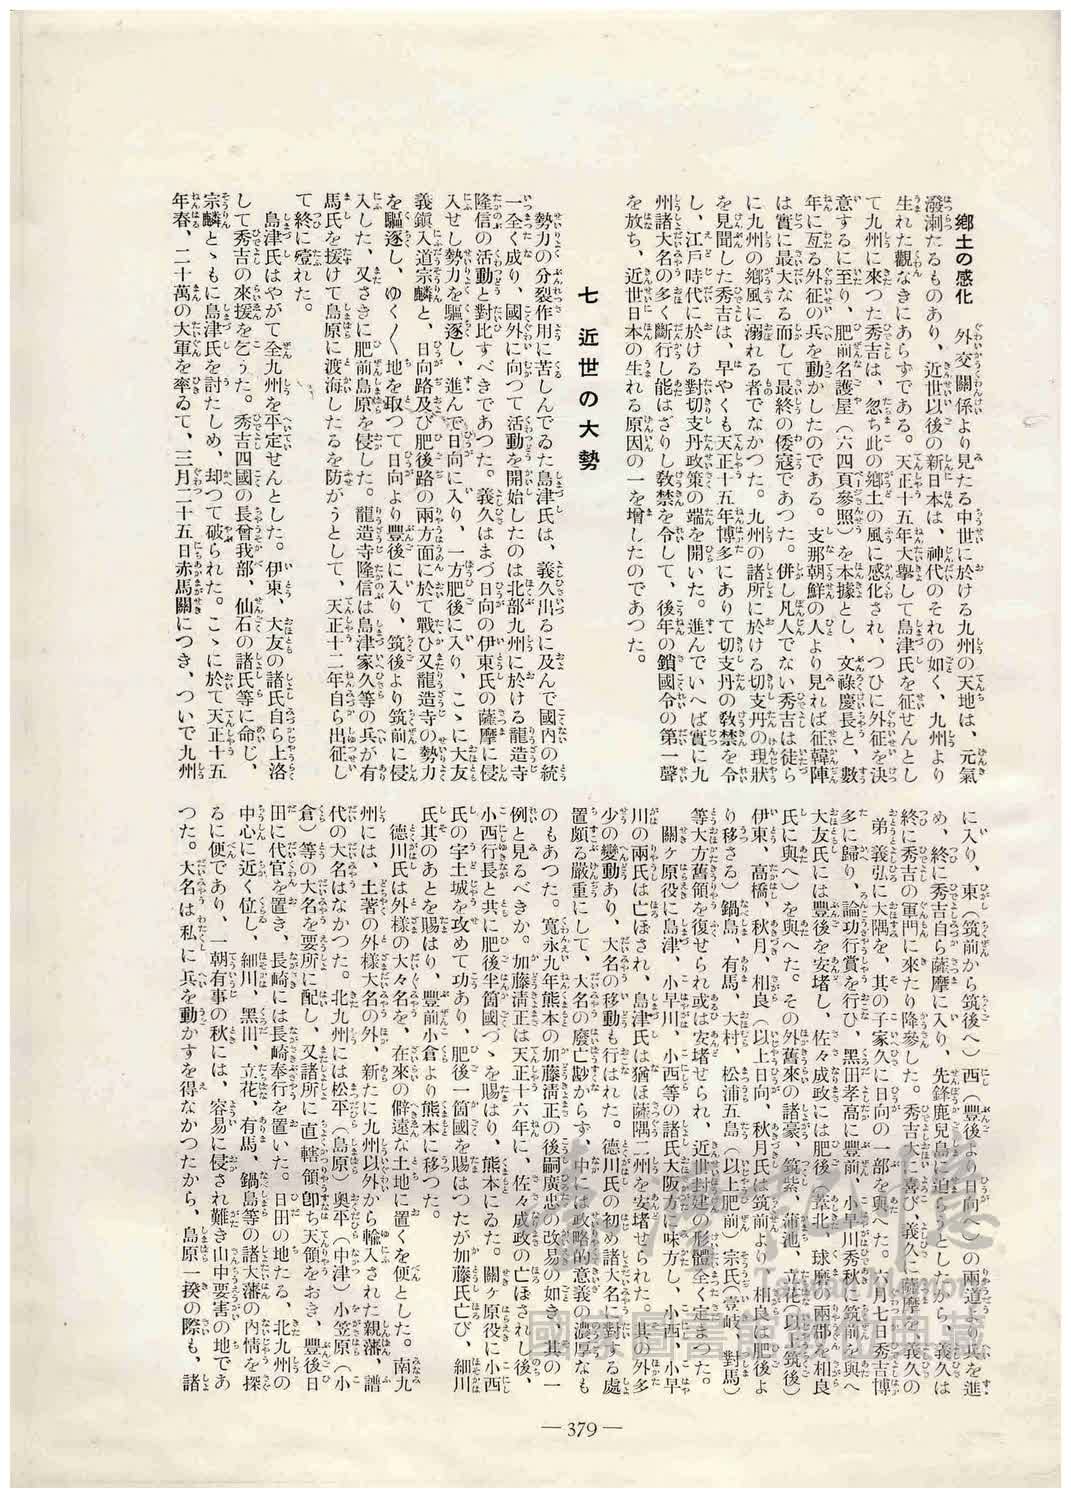 鄕土の感化　外交關係より見たる中世に於ける九州の天地は、元氣
潑溂たるものあり、近世以後の新日本は、神代のそれの如く、九州より
生れた觀なきにあらずである。天正十五年大擧して島津氏を征せんとし
て九州に來つた秀吉は、忽ち此の鄕土の風に感化され、つひに外征を決
意するに至り、肥前名護屋（六四頁參照）を本據とし、文祿慶長と、數
年に亙る外征の兵を動かしたのである。支那朝鮮の人より見れば征韓陣
は實に最大なる而して最終の倭寇であつた。併し凡人でない秀吉は徒ら
に九州の鄕風に溺れる者でなかつた。九州の諸所に於ける切支丹の現狀
を見聞した秀吉は、早やくも天正十五年博多にありて切支丹の敎禁を令
し、江戶時代に於ける對切支丹政策の端を開いた。進んでいへば實に九
州諸大名の多く斷行し能はざりし敎禁を令して、後年の鎖國令の第一聲
を放ち、近世日本の生れる原因の一を增したのであつた。
七　近世の大勢
勢力の分裂作用に苦しんでゐた島津氏は、義久出るに及んで國內の統
一全く成り、國外に向つて活動を開始したのは北部九州に於ける龍造寺
隆信の活動と對比すべきであつた。義久はまづ日向の伊東氏の薩摩に侵
入せし勢力を驅逐し、進んで日向に入り、一方肥後に入り、こゝに大友
義鎭入道宗麟と、日向路及び肥後路の兩方面に於て戰ひ又龍造寺の勢力
を驅逐し、ゆく〱地を取つて日向より豐後に入り、筑後より筑前に侵
入した、又さきに肥前島原を侵した。龍造寺隆信は島津家久等の兵が有
馬氏を援けて島原に渡海したるを防がうとして、天正十二年自ら出征し
て終に殪れた。
島津氏はやがて全九州を平定せんとした。伊東、大友の諸氏自ら上洛
して秀吉の來援を乞うた。秀吉四國の長曾我部、仙石の諸氏等に命じ、
宗麟とゝもに島津氏を討たしめ、却つて破られた。こゝに於て天正十五
年春、二十萬の大軍を率ゐて、三月二十五日赤馬關につき、ついで九州
に入り、東（筑前から筑後へ）西（豐後より日向へ）の兩道より兵を進
め、終に秀吉自ら薩摩に入り、先鋒鹿兒島に迫らうとしたから、義久は
終に秀吉の軍門に來たり降參した。秀吉大に喜び、義久に薩摩を、義久の
弟義弘に大隅を、其の子家久に日向の一部を與へた。六月七日秀吉博
多に歸り、論功行賞を行ひ、黑田孝高に豐前、小早川秀秋に筑前を與へ
大友氏には豐後を安堵し、佐々成政には肥後（葦北、球摩の兩郡を相良
氏に與へ）を與へた。その外舊來の諸豪、筑紫、蒲池、立花（以上筑後）
伊東、高橋、秋月、相良（以上日向、秋月氏は筑前より、相良は肥後よ
り移さる）鍋島、有馬、大村、松浦五島（以上肥前）宗氏（壹岐、對馬）
等大方舊領を復せられ或は安堵せられ、近世封建の形體全く定まつた。
關ヶ原役に島津、小早川、小西等の諸氏大阪方に味方し、小西、小早
川の兩氏は亡ぼされ、島津氏は猶ほ薩隅二州を安堵せられた。其の外多
少の變動あり、大名の移動も行はれた。德川氏の初め諸大名に對する處
置頗る嚴重にして、大名の廢亡尠からず、中には政略的意義の濃厚なも
のもあつた。寬永九年熊本の加藤淸正の後嗣廣忠の改易の如き、其の一
例と見るべきか。加藤淸正は天正十六年に、佐々成政の亡ぼされし後、
小西行長と共に肥後半箇國づゝを賜はり、熊本にゐた。關ヶ原役に小西
氏の宇土城を攻めて功あり、肥後一箇國を賜はつたが加藤氏亡び、細川
氏其のあとを賜はり、豐前小倉より熊本に移つた。
德川氏は外樣の大々名を、在來の僻遠な土地に置くを便とした。南九
州には、土著の外樣大名の外、新たに九州以外から輸入された親藩、譜
代の大名はなかつた。北九州には松平（島原）奧平（中津）小笠原（小
倉）等の大名を要所に配し、又諸所に直轄領卽ち天領をおき、豐後日
田に代官を置き、長崎には長崎奉行を置いた。日田の地たる、北九州の
中心に近く位し、細川、黑田、立花、有馬、鍋島等の諸大藩の內情を探
るに便であり、一朝有事の秋には、容易に侵され難き山中要害の地であ
つた。大名は私に兵を動かすを得なかつたから、島原一揆の際も、諸
— 379 —
臺灣記憶
Taiwan Memory
國家圖書館數位典藏